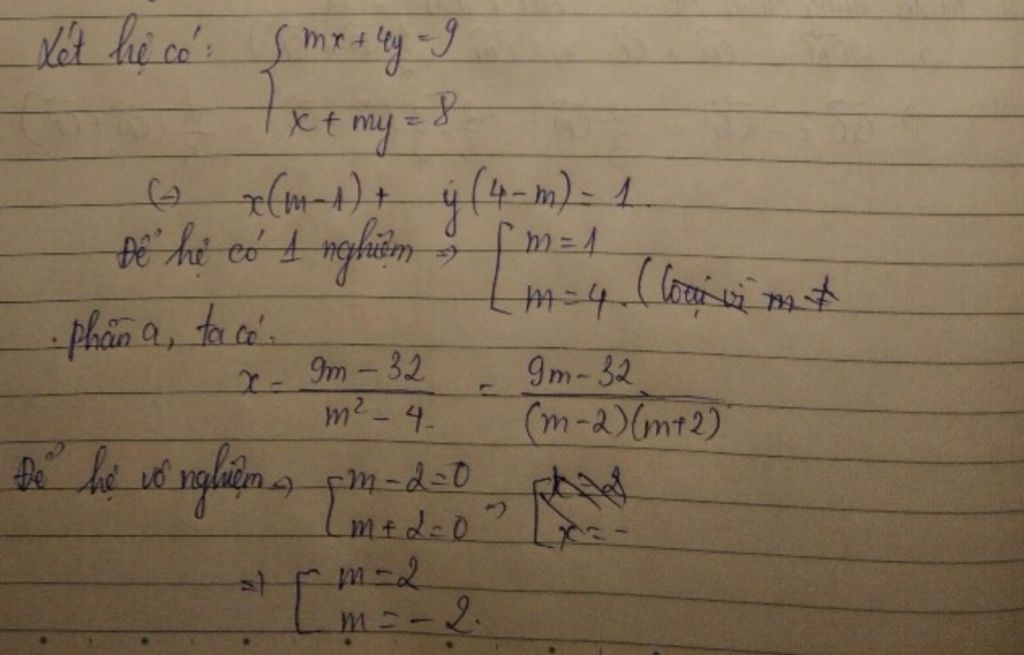 Xét hệ có: { mx + 4y = 9
x + my = 8
(-) x(m-1) + y(4-m) = 1.
Để hệ có 1 nghiệm => [ m = 1
m = 4. (loại vì m ≠
. phần a, ta có.
x = 9m - 32 / m² - 4. = 9m - 32 / (m-2)(m+2)
Để hệ vô nghiệm => [ m - 2 = 0 => [ x = 2
m + 2 = 0 x = -
=> [ m = 2
m = - 2.